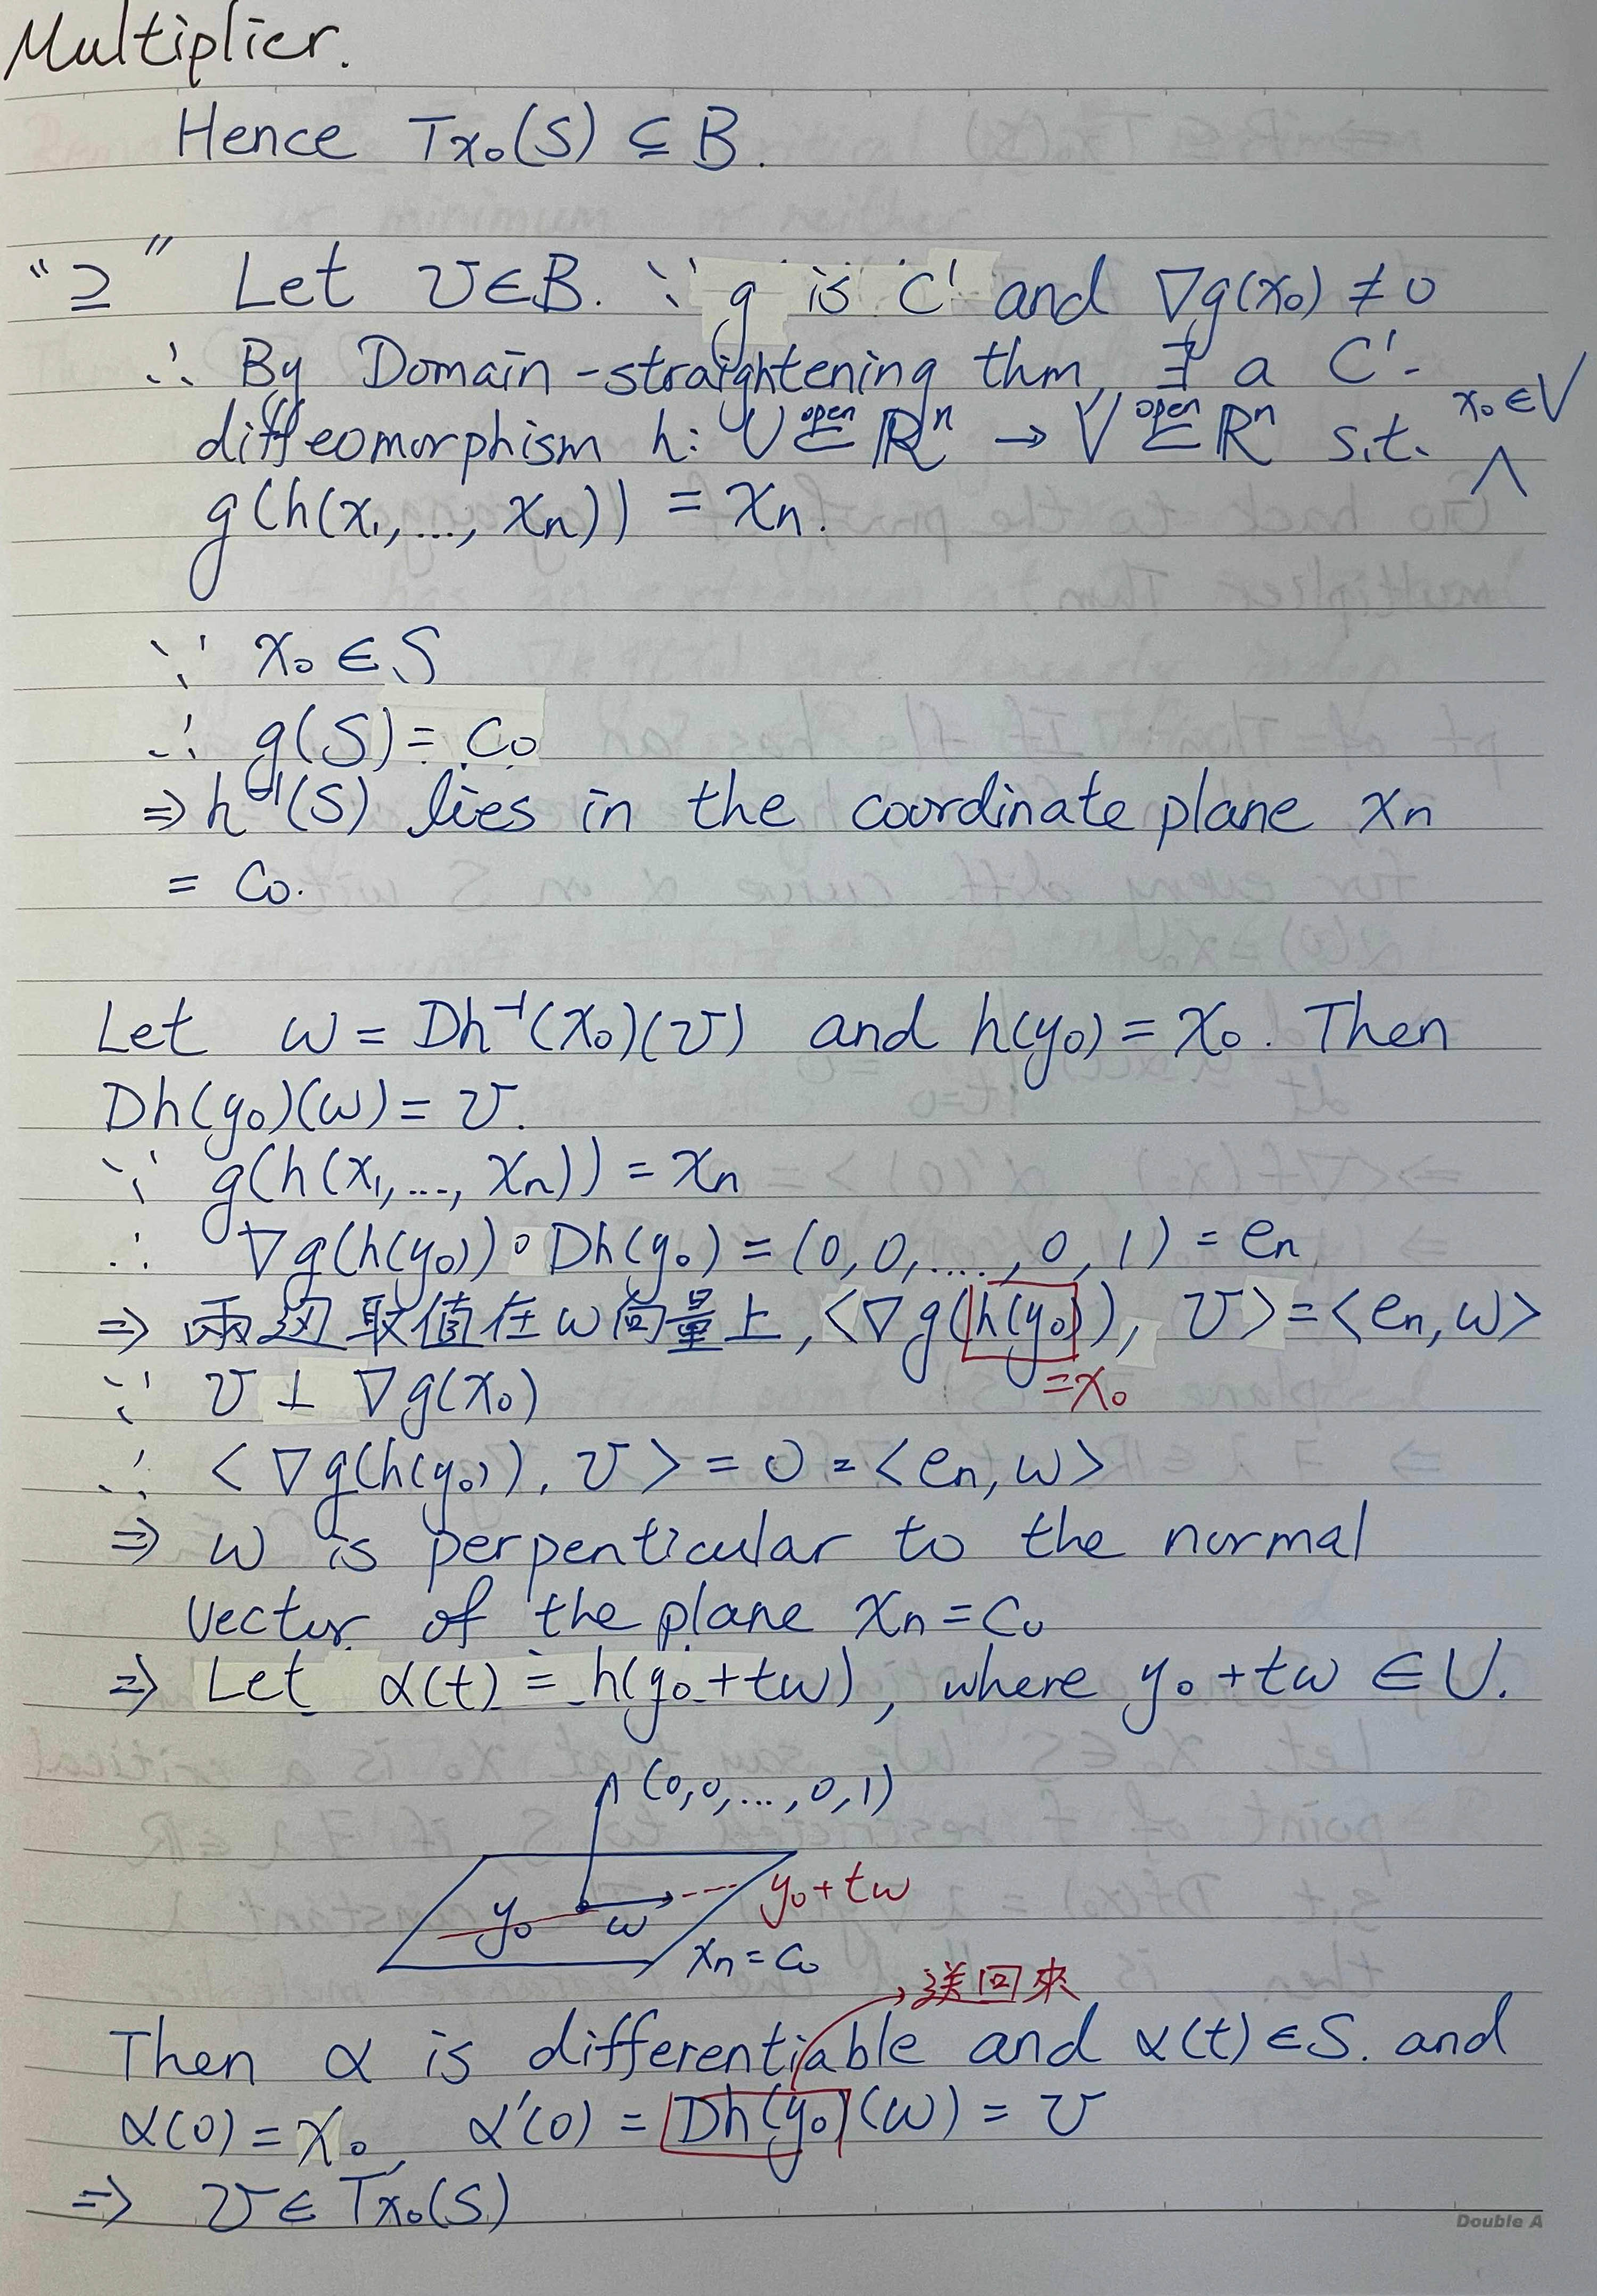 Multiplier.
Hence Tx₀(S) ⊆ B.
"⊇" Let v∈B. ∵ g is C¹ and ∇g(x₀) ≠ 0
∴ By Domain-straightening thm, ∃ a C¹-
diffeomorphism h: U ⊆ᵒᵖᵉⁿ ℝⁿ → V ⊆ᵒᵖᵉⁿ ℝⁿ s.t. ∧ x₀∈V
g(h(x₁,...,xₙ)) = xₙ.
∵ x₀ ∈ S
∴ g(S) = c₀
⇒ h⁻¹(S) lies in the coordinate plane xₙ
= c₀.
Let w = Dh⁻¹(x₀)(v) and h(y₀) = x₀. Then
Dh(y₀)(w) = v.
∵ g(h(x₁,...,xₙ)) = xₙ
∴ ∇g(h(y₀))∘Dh(y₀) = (0,0,....,0,1) = eₙ
⇒ 兩边取值在w向量上, <∇g(h(y₀)), v> = <eₙ,w>
=x₀
∵ v ⊥ ∇g(x₀)
∴ <∇g(h(y₀)), v> = 0 = <eₙ,w>
⇒ w is perpenticular to the normal
vector of the plane xₙ = c₀
⇒ Let α(t) = h(y₀+tw), where y₀+tw ∈ U.
(0,0,...,0,1)
y₀ w y₀+tw
xₙ=c₀
送回來
Then α is differentiable and α(t)∈S. and
α(0) = x₀, α'(0) = Dh(y₀)(w) = v
⇒ v∈Tx₀(S)
Double A